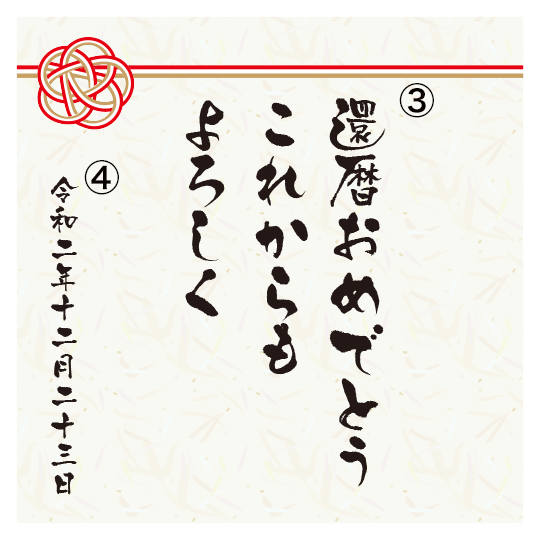 ③
還暦おめでとう
これからも
よろしく
④
令和二年十二月二十三日